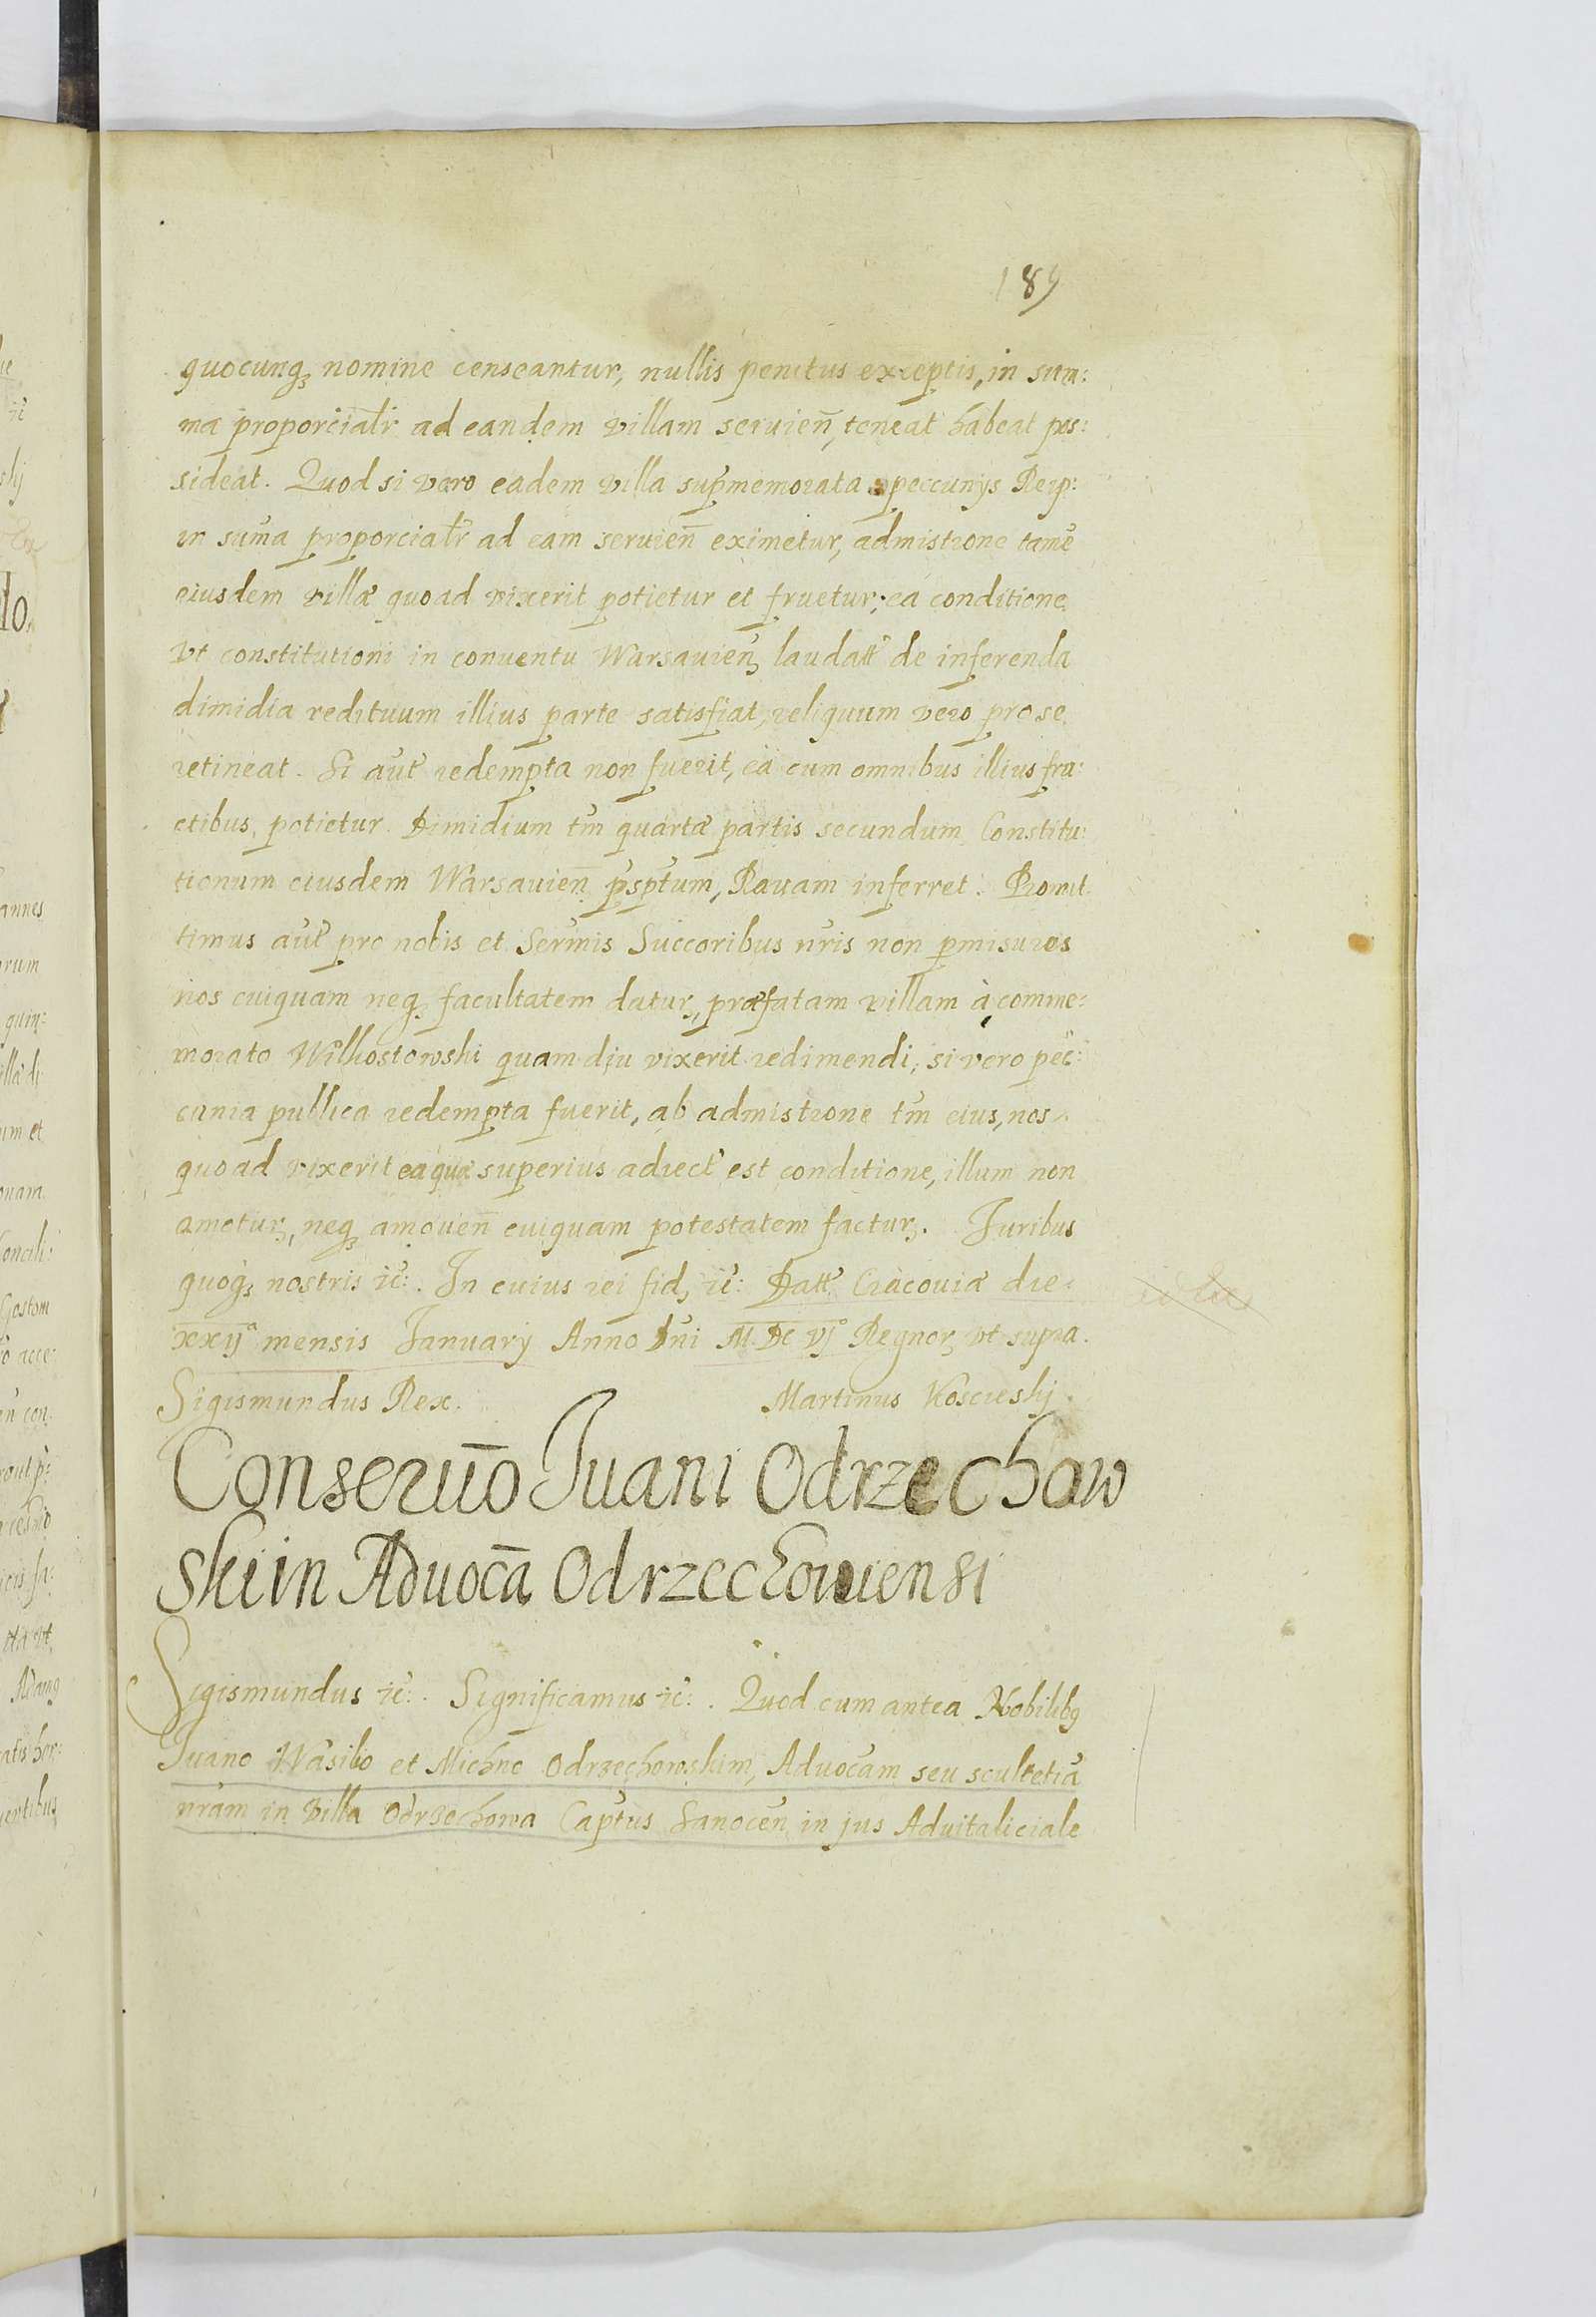 189
quocunqꝫ nomine censeantur, nullis penitus exceptis, in sum:
ma proporcialr̃ ad eandem villam seruien̄, teneat habeat pos:
sideat. Quod si vero eadem villa suprmemorata peccunijs Reip:
in sum̃a proporcialr̃ ad eam seruien̄ eximetur, admistrone tamē
eiusdem villæ quoad vixerit potietur et fruetur; ea conditione
vt constitutioni in conuentu Warsauien̄ laudatt de inferenda
dimidia redituum illius parte satisfiat, reliquum vero pro se
retineat. Si aut̃ redempta non fuerit, ea cum omnibus illius fru:
ctibus potietur. Dimidium tm̃ quartæ partis secundum Constitu:
tionum eiusdem Warsauien̄ p̃sp̃tum, Rauam inferret. Promit
timus aut̃ pro nobis et Serm̃is Succoribus nr̃is non pmisuros
nos cuiquam neqꝫ facultatem daturꝫ, præfatam villam à comme:
morato Wilkostowski quam diu vixerit redimendi, si vero pec:
cunia publica redempta fuerit, ab admistrone tm̃ eius, nos
quoad vixerit ea quæ superius adiect̃ est conditione, illum non
amoturꝫ, neqꝫ amouen̄ cuiquam potestatem facturꝫ. Juribus
quoqꝫ nostris ic̃:. In cuius rei fidꝫ ic̃: Datt Cracouiæ die
xxijᵃ mensis January Anno Dn̄i M. DC VJᵒ Regnorꝫ vt supra.
Sigismundus Rex. Martinus Koscieskj.
Conseruo̅ Juani Odrzechow
ski in Aduocā Odrzechouiensi
Sigismundus ic̃:. Significamus ic̃:. Quod cum antea Nobilibꝫ
Juano Wasilo et Michno Odrzechowskim, Aduocām seu scultetiā
nr̃am in Villa Odrzechowa Cap̃tus Sanocen̄ in jus Aduitaliciale